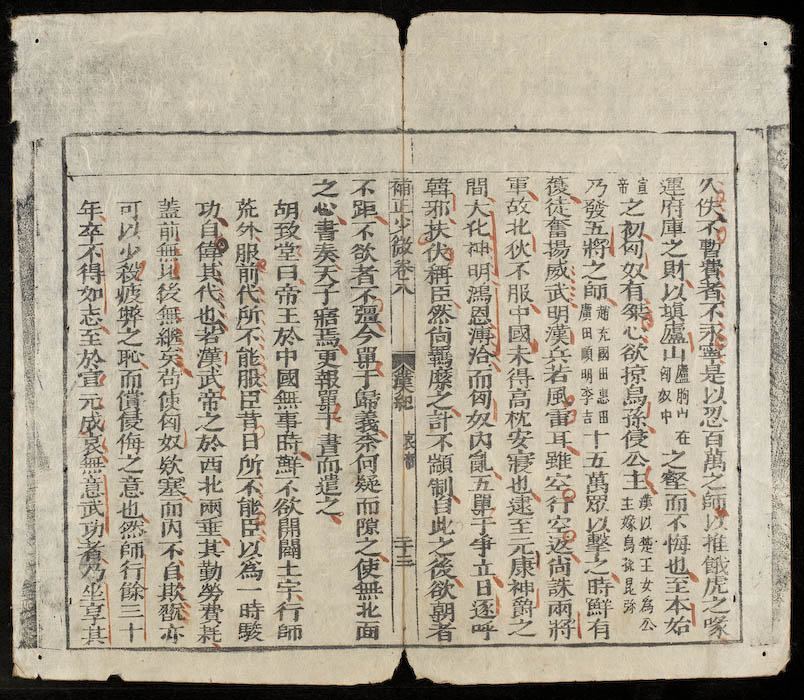 久佚不蹔費者不永寧是以忍百萬之師以摧餓虎之喙
運府庫之財以填盧山盧朐山在匈奴中之壑而不悔也至本始
宣帝之初匈奴有桀心欲掠烏孫侵公主漢以楚王女為公主嫁烏孫昆弥
乃發五將之師趙充國田惠田廣田順明李吉十五萬眾以擊之時鮮有
獲徒奮揚威武明漢兵若風雷耳雖空行空返尚誅兩將
軍故北狄不服中國未得高枕安寢也逮至元康神爵之
間大化神明鴻恩溥洽而匈奴內亂五單于爭立日逐呼
韓邪扶伏稱臣然尚羈縻之計不顓制自此之後欲朝者
補正少微卷八 漢紀 哀帝 二十三
不距不欲者不彊今單于歸義柰何疑而隙之使無北面
之心書奏天子寤焉更報單于書而遣之
胡致堂曰帝王於中國無事時鮮不欲開闢土宇行師
荒外服前代所不能服臣昔日所不能臣以為一時駿
功自偉其代也若漢武帝之於西北兩垂其勤勞費耗
蓋前無比後無繼矣苟使匈奴欵塞而內不自欺翫亦
可以少殺疲弊之恥而償侵侮之意也然師行餘三十
年卒不得如志至於宣元成哀無意武功者乃坐享其